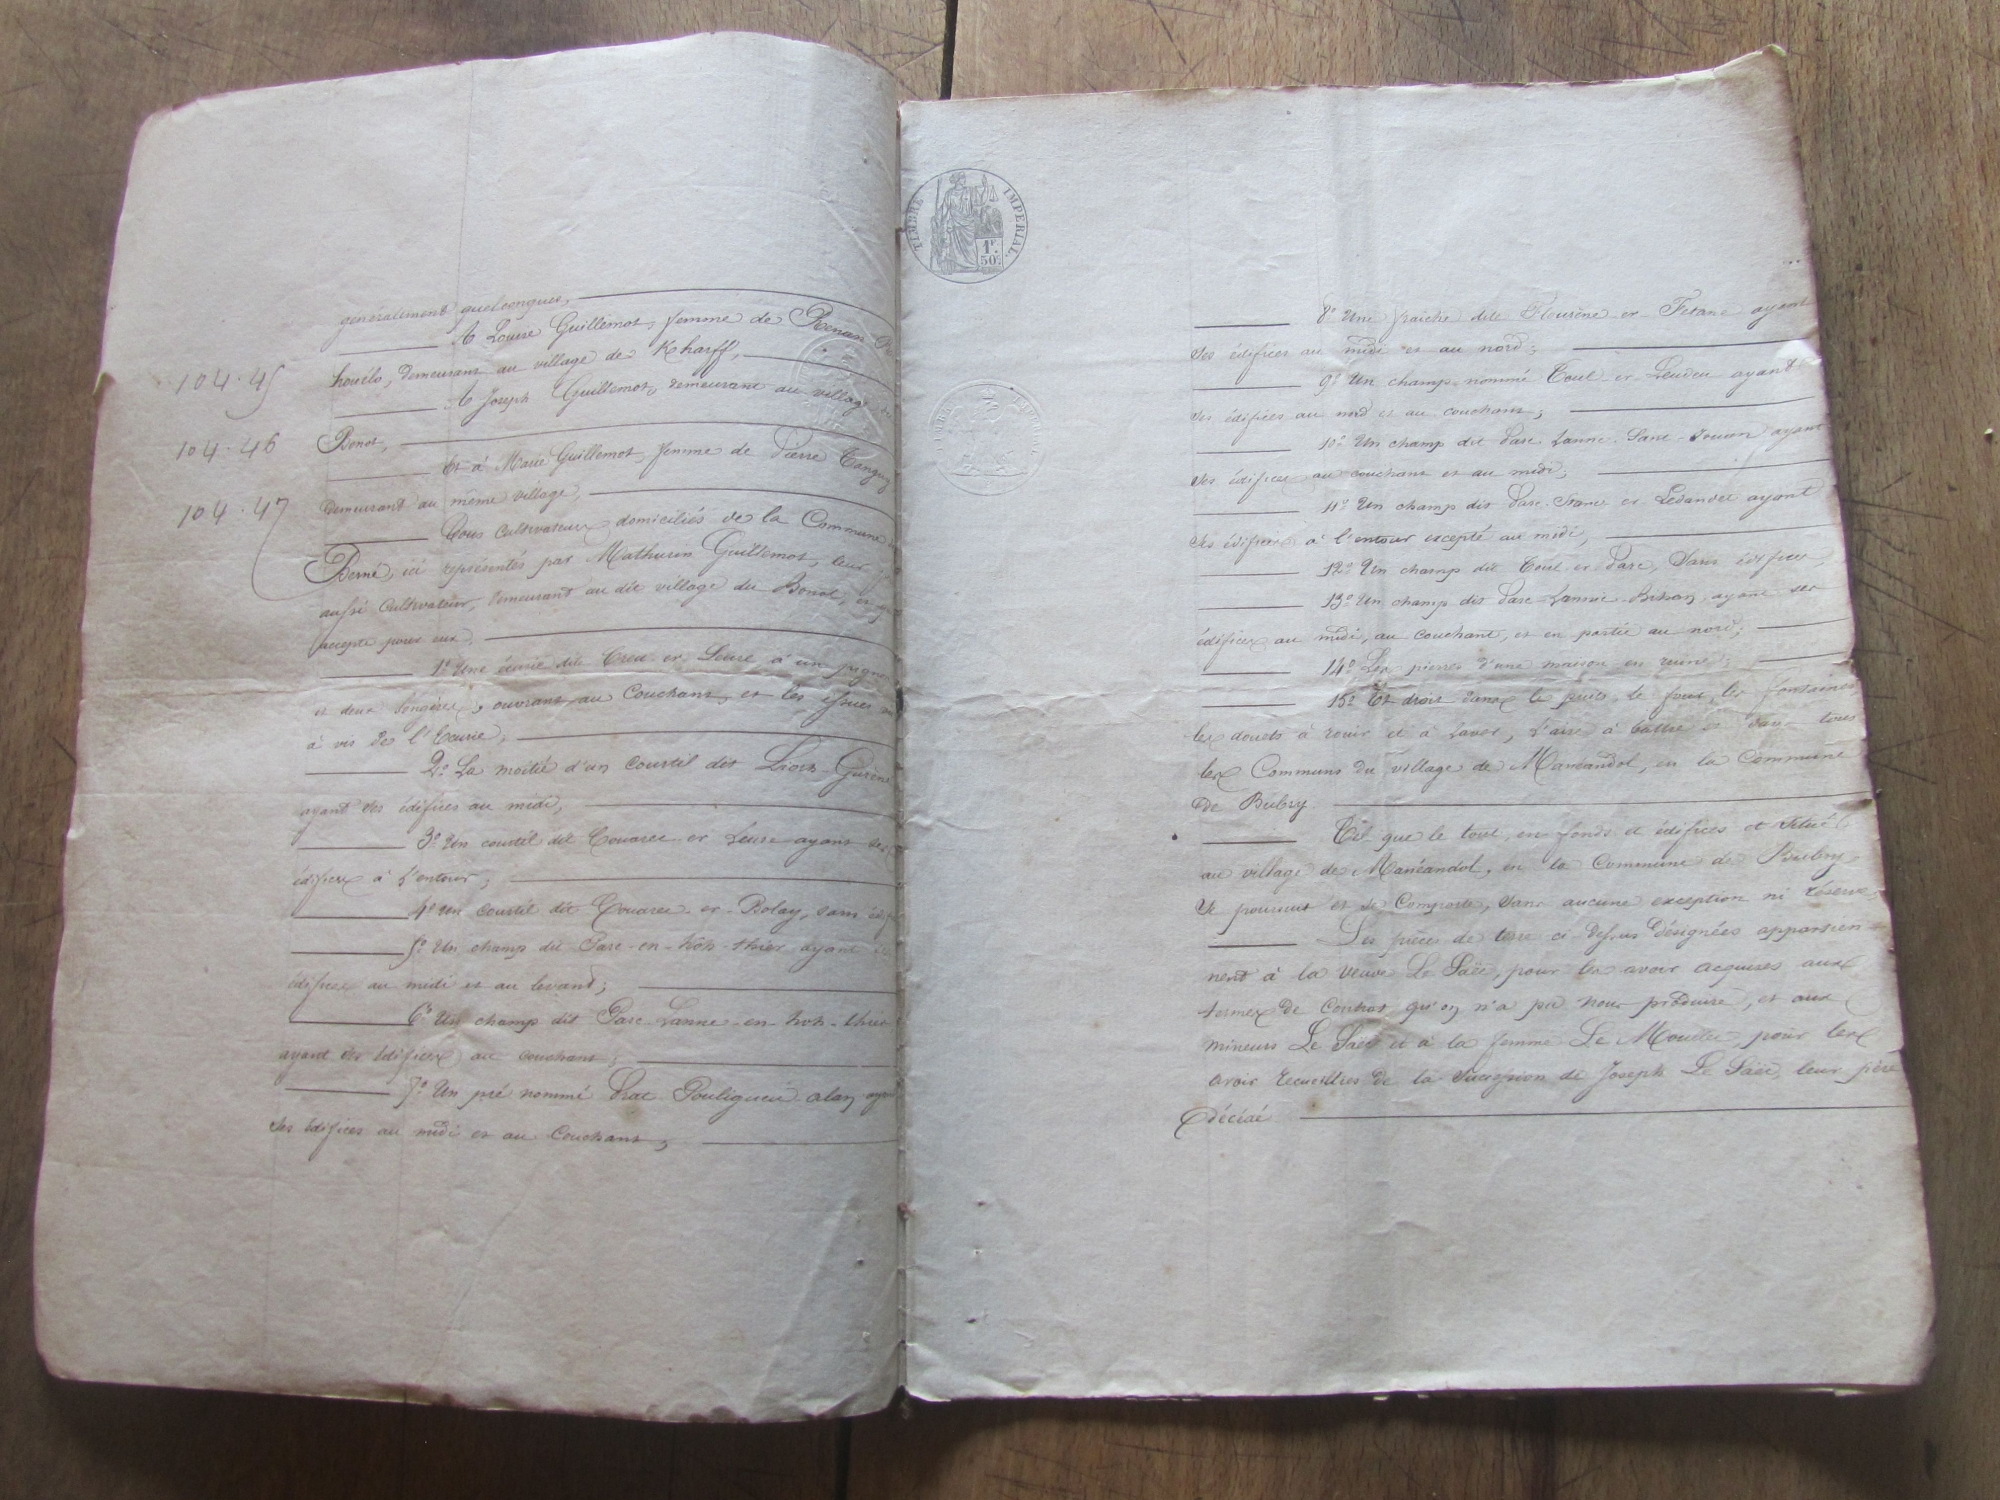 généralement quelconques,
A Louise Guillemot, femme de Renan
104.45
houëlo, demeurant au village de Kharff,
A Joseph Guillemot, demeurant au village
104.46
Bonot,
Et à Marie Guillemot, femme de Pierre Tanguy
104.47
demeurant au même village,
Tous cultivateurs domiciliés de la Commune
Berné, ici représentés par Mathurin Guillemot, leur
aussi cultivateur, demeurant au dit village du Bonot,
accepte pour eux.
1º Une écurie dite Creu er Leure, à un pignon
et deux longères, ouvrant au Couchant, et les issues
à vis de l'Ecurie;
2º La moitié d'un courtil dit Liorh-Gurène
ayant ses édifices au midi,
3º Un courtil dit Couarec er Leure ayant ses
édifices à l'entour;
4º Un courtil dit Couarec er Bolay, sans
5º Un champ dit Parc-en-hoh-thier ayant
édifices au midi et au levant;
6º Un champ dit Parc Lanne-en-hoh-thier
ayant ses édifices au couchant;
7º Un pré nommé Prat Pouligueu alan
ses édifices au midi et au Couchant;
TIMBRE IMPERIAL.
1F.
50C.
8º Une fraiche dite Flourène er Fetane ayant
ses édifices au midi et au nord;
9º Un champ nommé Toul er Leudeu ayant
ses édifices au nord et au couchant;
10º Un champ dit Parc Lanne Parc Jouan ayant
ses édifices au couchant et au midi;
11º Un champ dit Parc Stanc er Lesander ayant
ses édifices à l'entour excepté au midi,
12º Un champ dit Toul er Parc, Sans édifices,
13º Un champ dit Parc Lannic Bihan, ayant ses
édifices au midi, au couchant, et en partie au nord;
14º Les pierres d'une maison en ruine;
15º Et droit dans le puits, le four, les fontaines
les douets à rouir et à laver, l'aire à battre et dans tous
les Communs du village de Manéandol, en la Commune
de Bubry.
Tel que le tout, en fonds et édifices et situé
au village de Manéandol, en la Commune de Bubry
se poursuit et se Comporte, sans aucune exception ni réserve,
Les pièces de terre ci-dessus désignées appartien-
nent à la veuve Le Saëc, pour les avoir acquises aux
termes de Contrat qu'on n'a pu nous produire, et aux
mineurs Le Saëc et à la femme Le Mouelic, pour les
avoir recueillies de la succession de Joseph Le Saëc, leur père
décédé